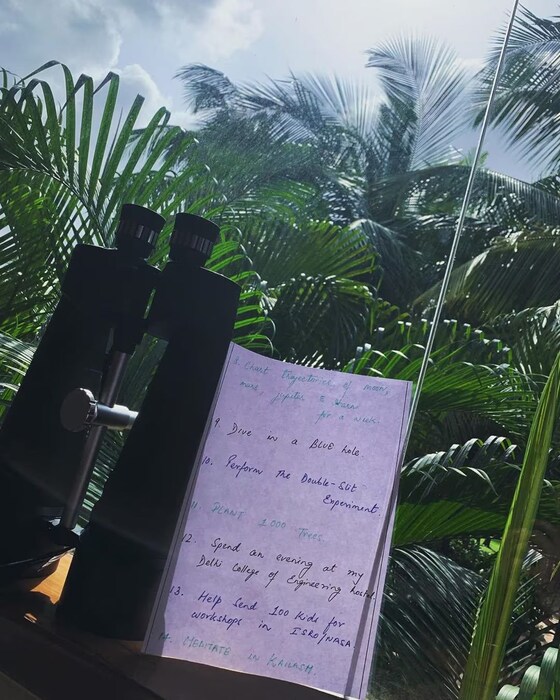 8. Chart trajectories of moon,
mars, jupiter & saturn
for a week.
9. Dive in a BLUE hole
10. Perform the Double-Slit
Experiment.
11. PLANT 1000 Trees
12. Spend an evening at my
Delhi College of Engineering hostel
13. Help Send 100 Kids for
workshops in ISRO/NASA.
14. MEDITATE in KAILASH.